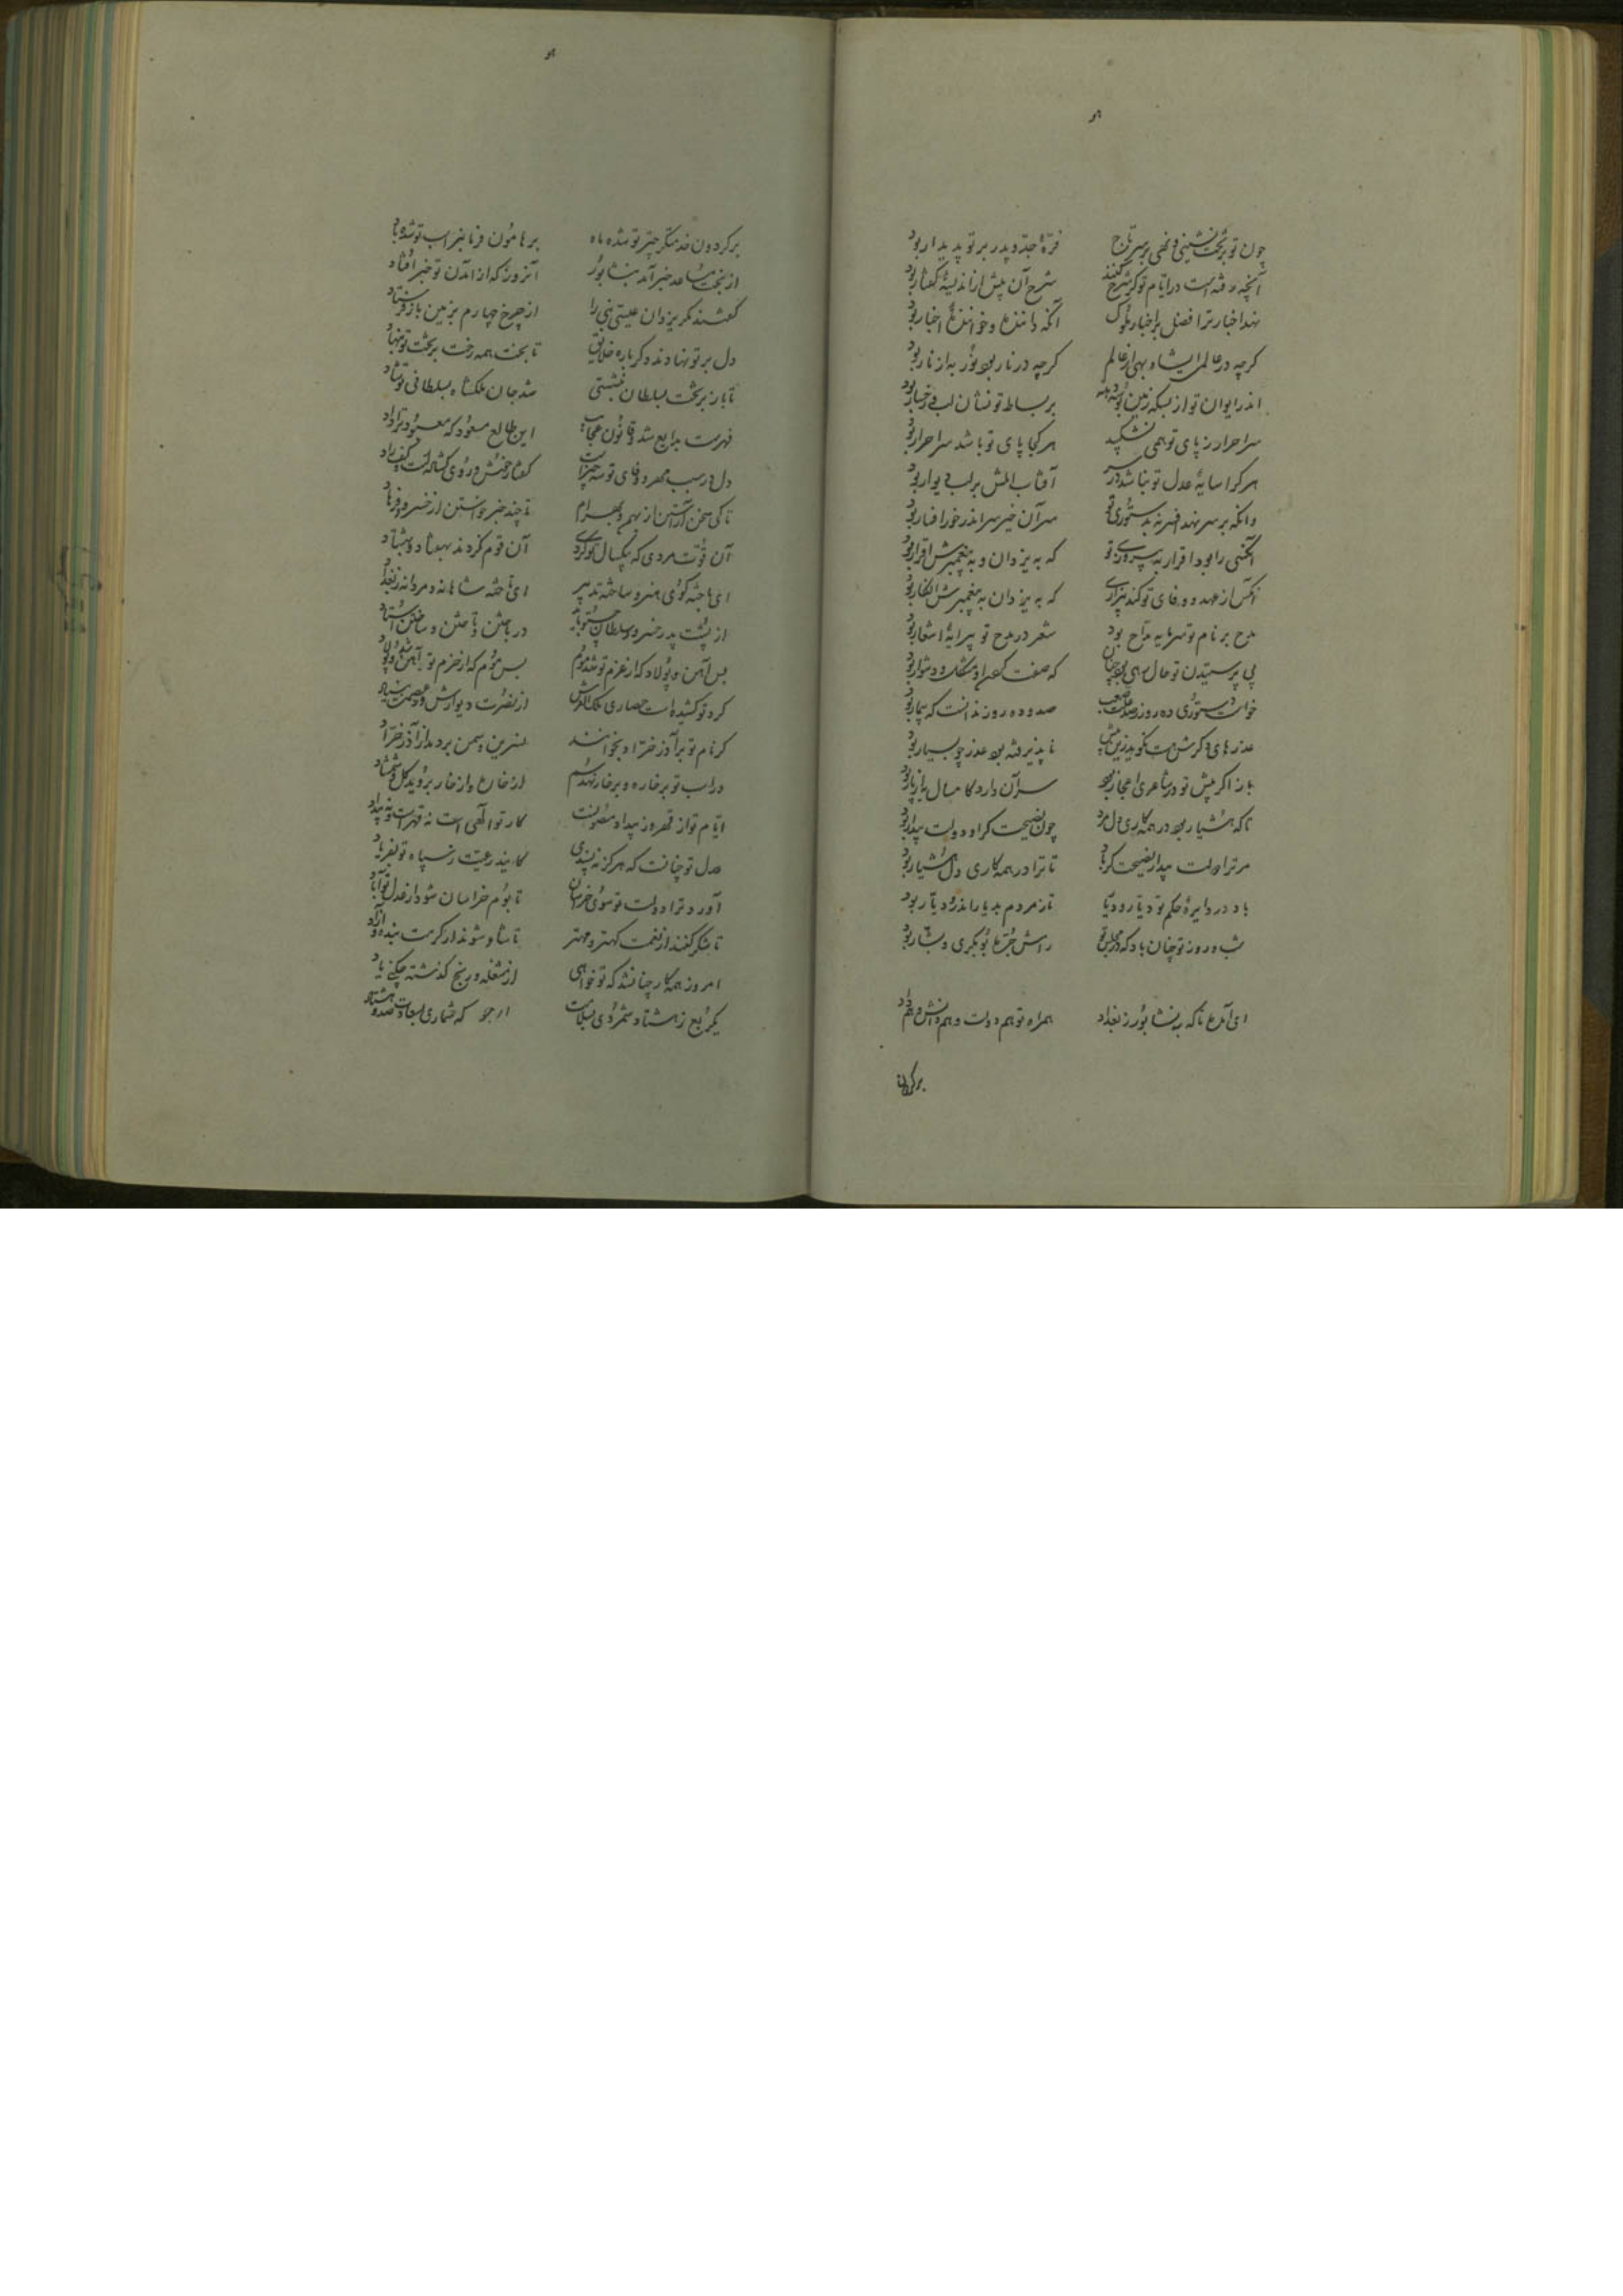 هو
چون تو بر تخت نشینی و نهی بر سر تاج فرّهٔ جدّ و پدر بر تو پدیدار بود
آنچه رفته است در ایام تو گر شرح کنند شرح آن پیش از اندیشهٔ گفتار بود
نهد اخبار ترا فضل بر اخبار ملوک آنکه دانندهٔ و خوانندهٔ اخبار بود
گرچه در عالم گرچه در نار بود نور به از نار بود
اندر ایوان تو از بسکه زمین بوسه دهند بر بساط تو نشان لب و رخسار بود
سر احرار ز پای تو همی نشکیبد هر کجا پای تو باشد سر احرار بود
هر کرا سایهٔ عدل تو نباشد بر سر آفتاب املش بر لب دیوار بود
وانکه بر سر نهد افسر نه بدستوری تو سر آن خیره سر اندر خور افسار بود
آنکسی را بود اقرار به پیروزی تو که به یزدان و به پیغمبرش اقرار بود
آنکس از عهد و وفای تو کند بیزاری که به یزدان به پیغمبرش انکار بود
مدح بر نام تو سرمایهٔ مدّاح بود شعر در مدح تو پیرایهٔ اشعار بود
پی پرستیدن تو حال رهی بود چنان که صفت کردن او مشکل و دشوار بود
خواست دستوری ده روز صد و ده روز ندانست که بیمار بود
عذرهای دگرش هست نگوید زین بیش ناپذیرفته بود عذر چو بسیار بود
باز اگر پیش تو در شاعری اعجاز نمود سر آن دارد کامسال به از پار بود
تا که هشیار بود در همه کاری دل مرد چون نصیحت گر او دولت بیدار بود
مر ترا دولت بیدار نصیحت گر باد تا ترا در همه کاری دل هشیار بود
باد در دایرهٔ حکم تو دیّار و دیار تا ز مردم بدیار اندر دیّار بود
شب و روز تو چنان باد که در مجلس تو رامش جدّهٔ بوبکری و بشّار بود
ای آمده تا که به نشابور ز بغداد همراه تو هم دولت و هم دانش و هم داد
برگردون
هو
بر گردون خدمتگر چتر تو شده ماه بر هامون فرمانبر اسب تو شده باد
از بخت مساعد خبر آمد به نشابور آنروز که از آمدن تو خبر افتاد
گفتند مگر یزدان عیسیّ نبی را از چرخ چهارم بزمین باز فرستاد
دل بر تو نهادند دگر باره خلایق تا بخت همه رخت بر تخت تو بنهاد
تا باز بر تخت سلطان بنشستی شد جان ملکشاه بسلطانی تو شاد
فهرست بدایع شد و قانون عجایب این طالع مسعود که مسعود ترا داد
دل در سبب مهر و وفای تو سه چیز است گفتار خوش و روی گشاده است و کف راد
تا کی سخن آراستن از بهمن و بهرام تا چند خبر خواستن از خسرو و فرهاد
آن قوّت مردی که بیکسال تو کردی آن قوم نکردند بهفتاد و بهشتاد
ای باخته گوی هنر و ساخته تدبیر ای تاخته شاهانه و مردانه ز بغداد
از پشت پدر خسرو و سلطان چو تو باید در باختن و تاختن و ساختن استاد
بس آهن و پولاد که از عزم تو شد موم بس موم که از حزم تو شد آهن و پولاد
گرد تو کشیده است حصاری ملک العرش از نصرت دیوارش و از عصمت بنیاد
گر نام تو بر آذر خرّاد بخوانند نسرین و سمن بردمد از آذر خرّاد
ور اسب تو بر خاره و بر خار نهد سم از خاره و از خار بروید گل و شمشاد
ایام تو از قهر و ز بیداد مصونست کار تو الهی است نه قهر است و نه بیداد
عدل تو چنانست که هرگز نپسندی کایند رعیّت ز سپاه تو بفریاد
آورد ترا دولت تو سوی خراسان تا بوم خراسان شود از عدل تو آباد
تا شکر کنند از نعمت کهتر و مهتر تا شاد شوند از کرمت بنده و آزاد
امروز همه کار چنان شد که تو خواهی از مشغله و رنج گذشته چه کنی یاد
یک ربع ز هشتاد شمردی بسلامت ارجو که شماری بسعادت صد و هشتاد